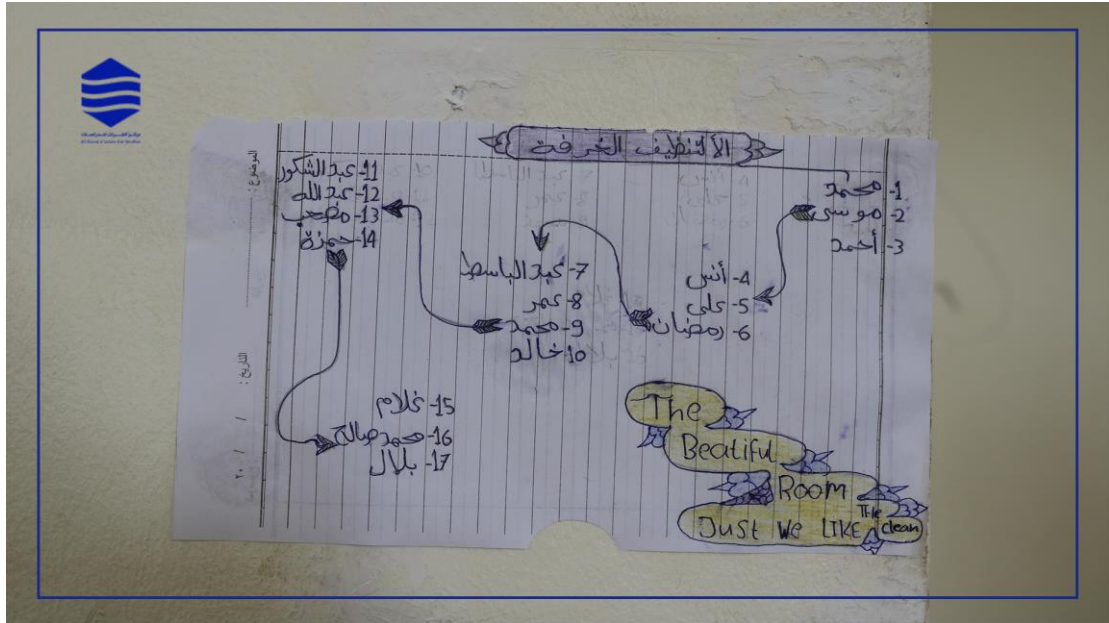 الألتنظيف الغرفة
1- محمد
2- موسى
3- أحمد
4- أنس
5- على
6- رمضان
7- عبد الباسط
8- عمر
9- محمد
10- خالد
11- عبد الشكور
12- عبد الله
13- مصعب
14- حمزة
15- غلام
16- محمد صالح
17- بلال
The
Beatiful
Room
Just We LIKE The clean
الموضوع:
التاريخ: / / ٢٠